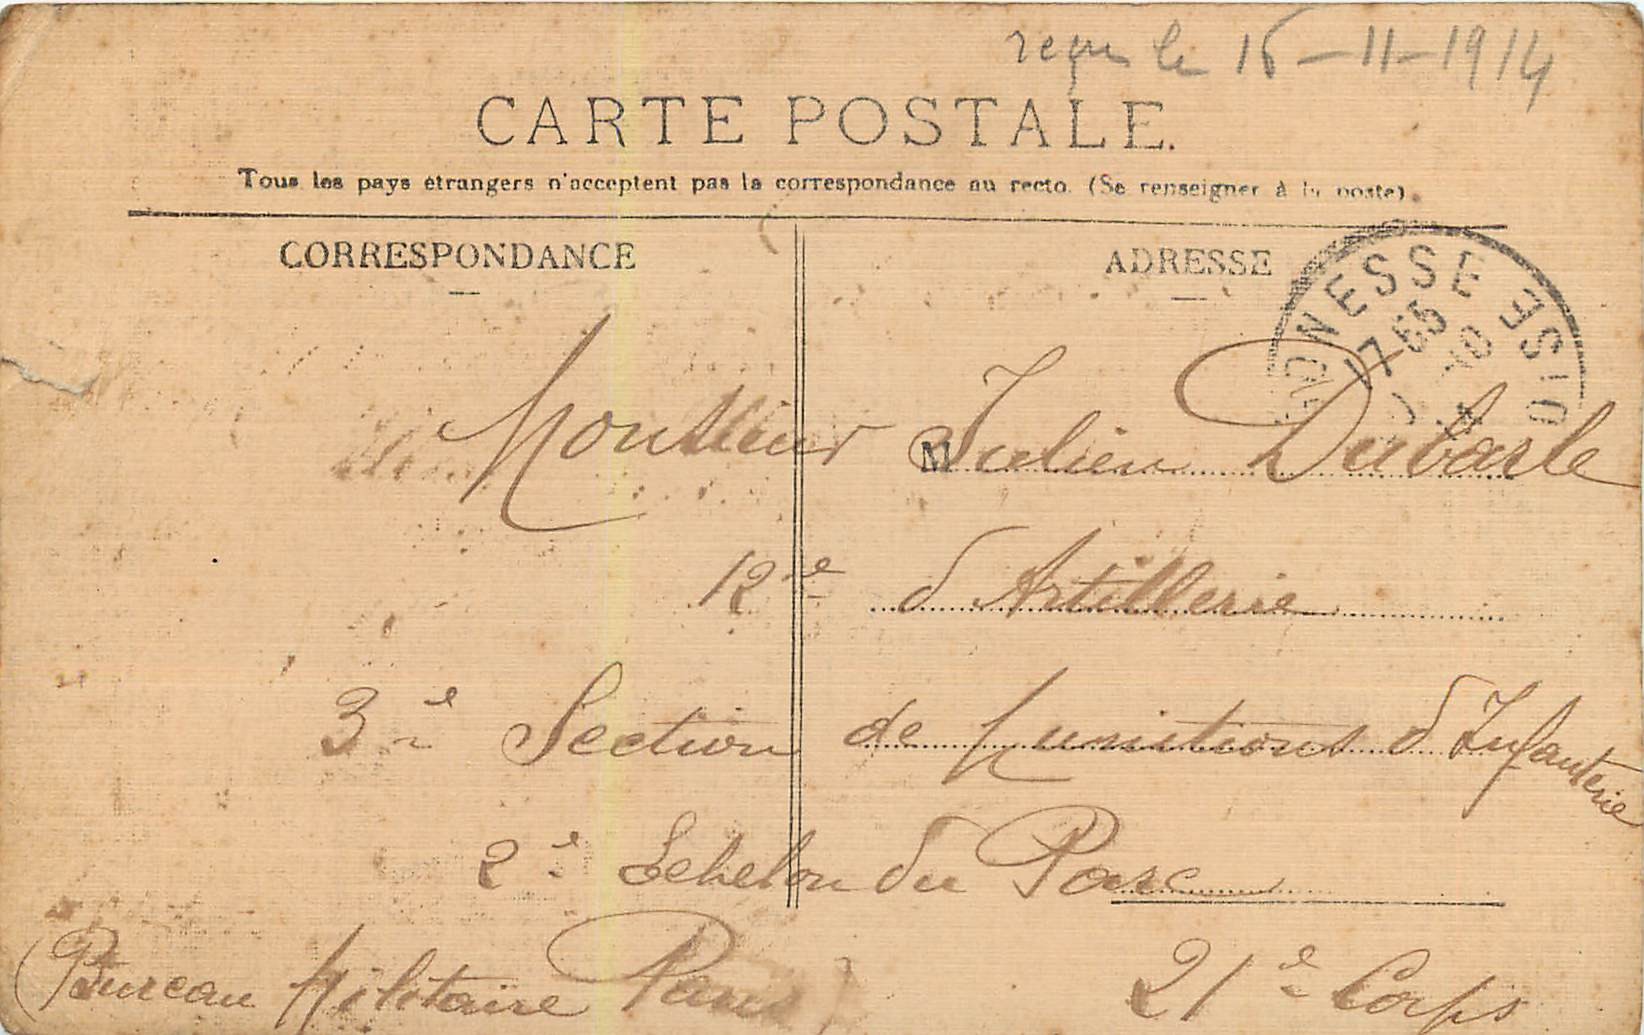 reçu le 16-11-1914
CARTE POSTALE.
Tous les pays étrangers n'acceptent pas la correspondance au recto. (Se renseigner à la poste).
CORRESPONDANCE
ADRESSE
NESSE
OISE
17 55
10
Monsieur Julien Dubarle
M
12e d'Artillerie
3e Section de Munitions d'Infanterie
2e Echelon du Parc
21e Corps
(Bureau Militaire Paris)